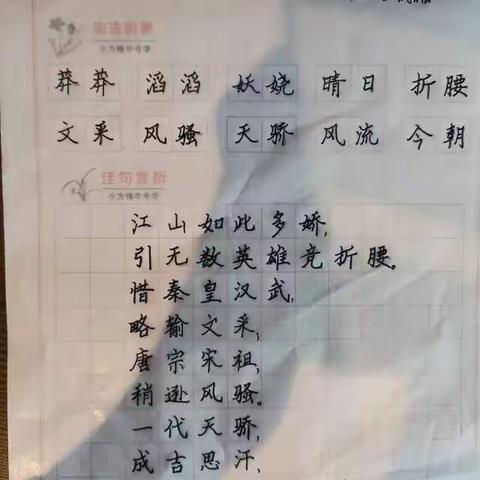 词语积累
小方格中号字
莽莽 滔滔 妖娆 晴日 折腰
文采 风骚 天骄 风流 今朝
佳句赏析
小方格中号字
江山如此多娇,
引无数英雄竞折腰。
惜秦皇汉武,
略输文采,
唐宗宋祖,
稍逊风骚。
一代天骄,
成吉思汗,